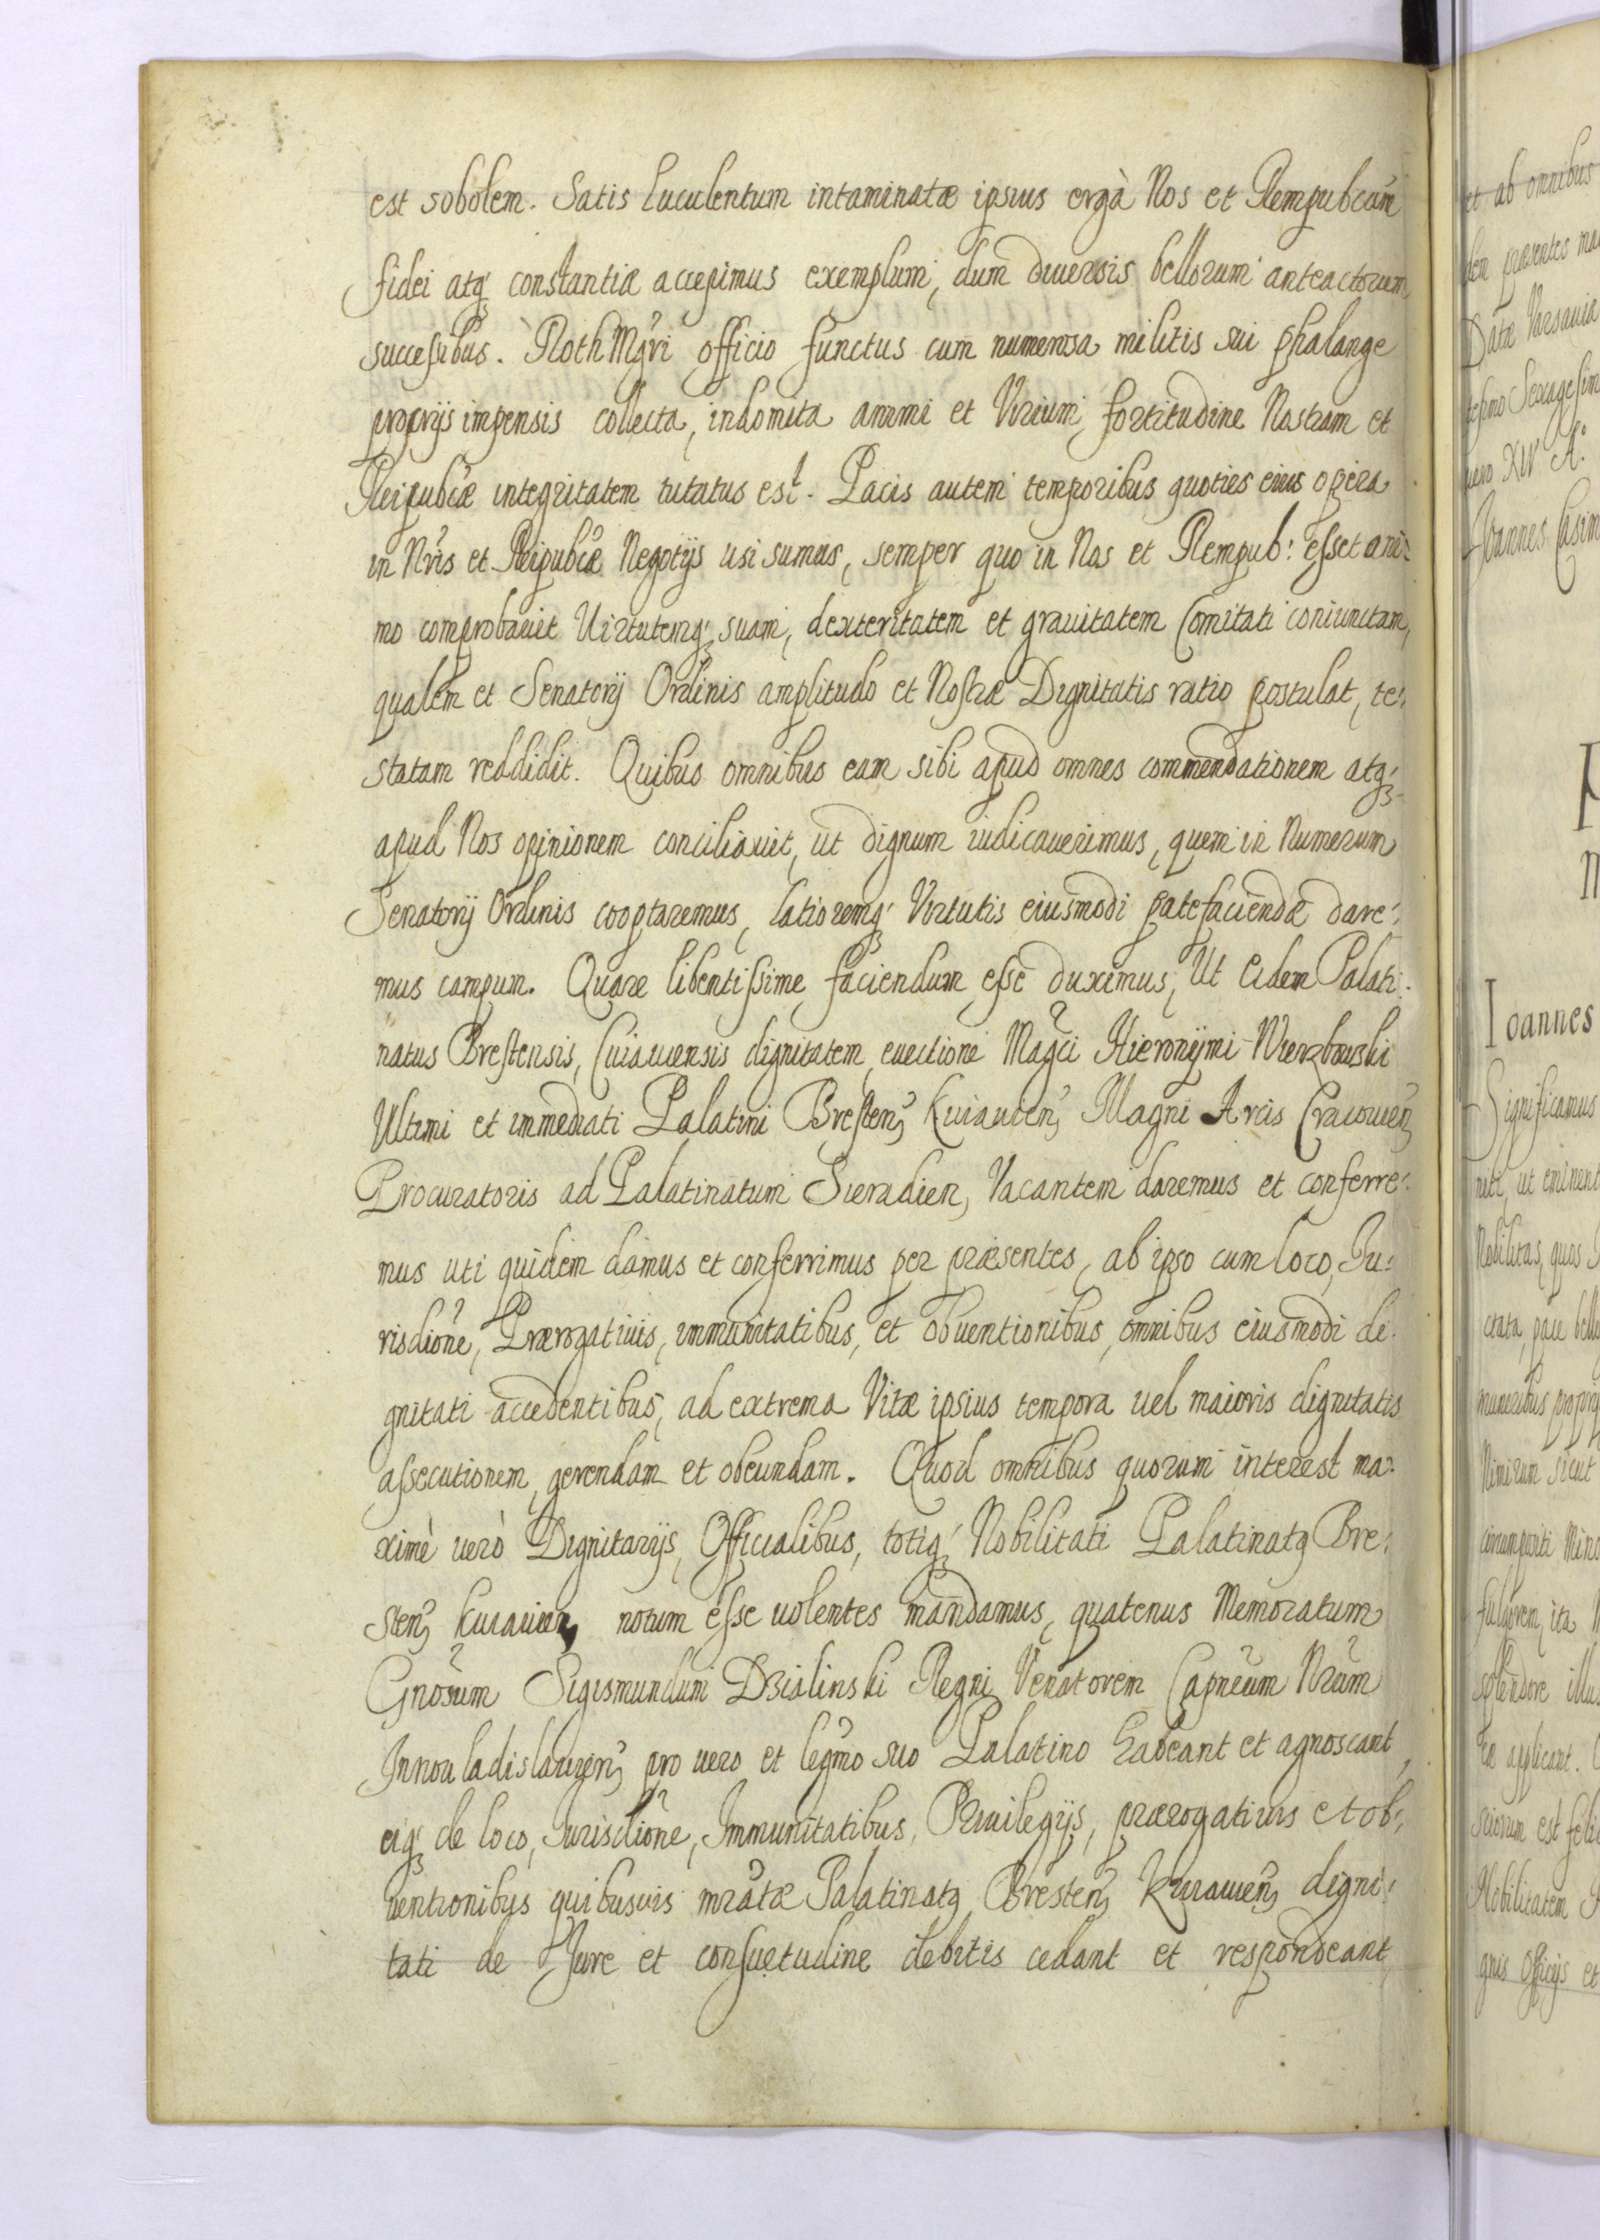 est sobolem. Satis luculentum intaminatæ ipsius ergà Nos et Rempubcam
fidei atq; constantiæ accepimus exemplum, dum diuersis bellorum anteactorum
successibus. RothMgri officio functus cum numerosa militis sui phalange
proprijs impensis collecta, indomita animi et Virium fortitudine Nostram et
Reipubcæ integritatem tutatus est. Pacis autem temporibus quoties eius opera
in Nris et Reipubcæ Negotijs usi sumus, semper quo in Nos et Rempub: esset ani:
mo comprobauit Uirtutemq; suam, dexteritatem et grauitatem Comitati coniunctam,
qualem et Senatorij Ordinis amplitudo et Nostræ Dignitatis ratio postulat, te:
statam reddidit. Quibus omnibus eam sibi apud omnes commendationem atq;
apud Nos opinionem conciliauit, ut dignum iudicauerimus, quem in Numerum
Senatorij Ordinis cooptaremus, latioremq; Virtutis eiusmodi patefaciendæ dare:
mus campum. Quare libentissime faciendum esse duximus, Ut Eidem Palati:
natus Brestensis, Cuiauiensis dignitatem, euectione Magci Hieronymi Wierzbowski
Ultimi et immediati Palatini Bresten, Kuiauien, Magni Arcis Cracouien,
Procuratoris ad Palatinatum Sieradien, Vacantem daremus et conferre:
mus uti quidem damus et conferrimus per præsentes, ab ipso cum loco, Ju:
risdione, Prærogatiuis, immunitatibus, et obuentionibus, omnibus eiusmodi di:
gnitati accedentibus, ad extrema Vitæ ipsius tempora uel maioris dignitatis
assecutionem, gerendam et obeundam. Quod omnibus quorum interest ma:
ximè uerò Dignitarijs, Officialibus, totiq; Nobilitati Palatinatq Bre:
sten, Kuiauien, notum esse uolentes mandamus, quatenus Memoratum
Gnosum Sigismundum Dzialinski Regni Venatorem Capneum Nrum
Innouladislauien, pro uero et legmo suo Palatino habeant et agnoscant,
eiq; de loco, Jurisdione, Immunitatibus, Priuilegijs, prærogatiuis et ob:
uentionibus quibusuis mratæ Palatinatq Bresten, Kuiauien, digni:
tati de Jure et consuetudine debitis cedant et respondeant
et ab omnibus
Datæ Varsauiæ
Ioannes
Significamus